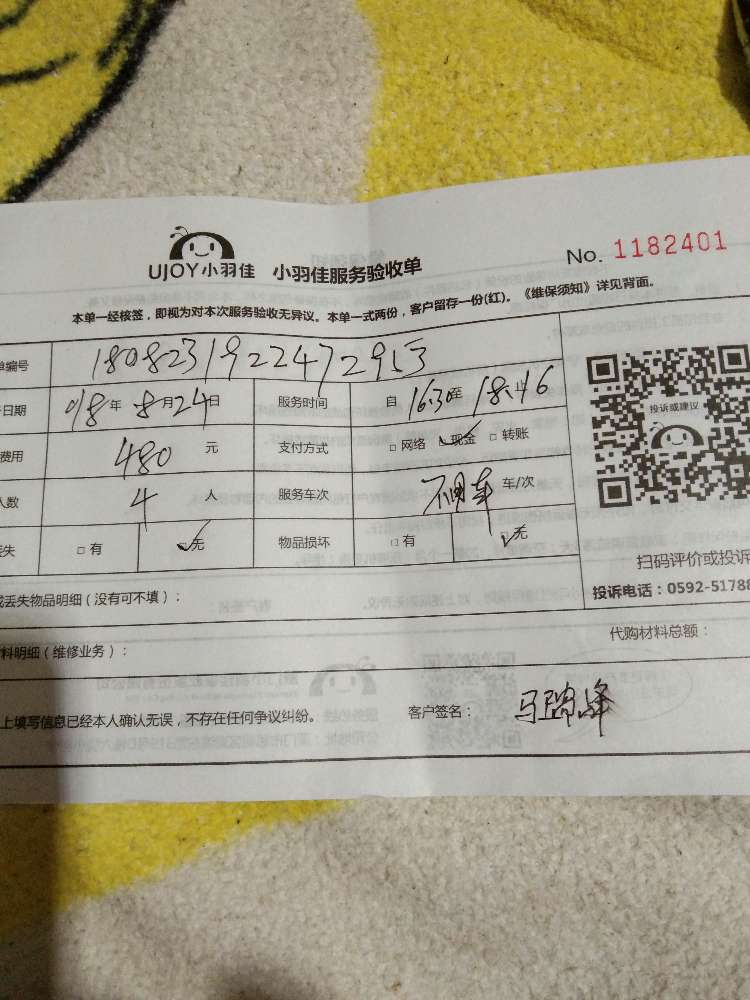 UJOY小羽佳 小羽佳服务验收单
No. 1182401
本单一经核签，即视为对本次服务验收无异议。本单一式两份，客户留存一份(红)。《维保须知》详见背面。
单编号 1808231922472953
日期 018年 8月24日 服务时间 自 16:30至 18:16止
费用 480 元 支付方式 □网络 ☑现金 □转账
人数 4 人 服务车次 不用车 车/次
丢失 □有 ☑无 物品损坏 □有 ☑无
投诉或建议
扫码评价或投诉
投诉电话：0592-51788
或丢失物品明细（没有可不填）：
料明细（维修业务）：
代购材料总额：
上填写信息已经本人确认无误，不存在任何争议纠纷。 客户签名：